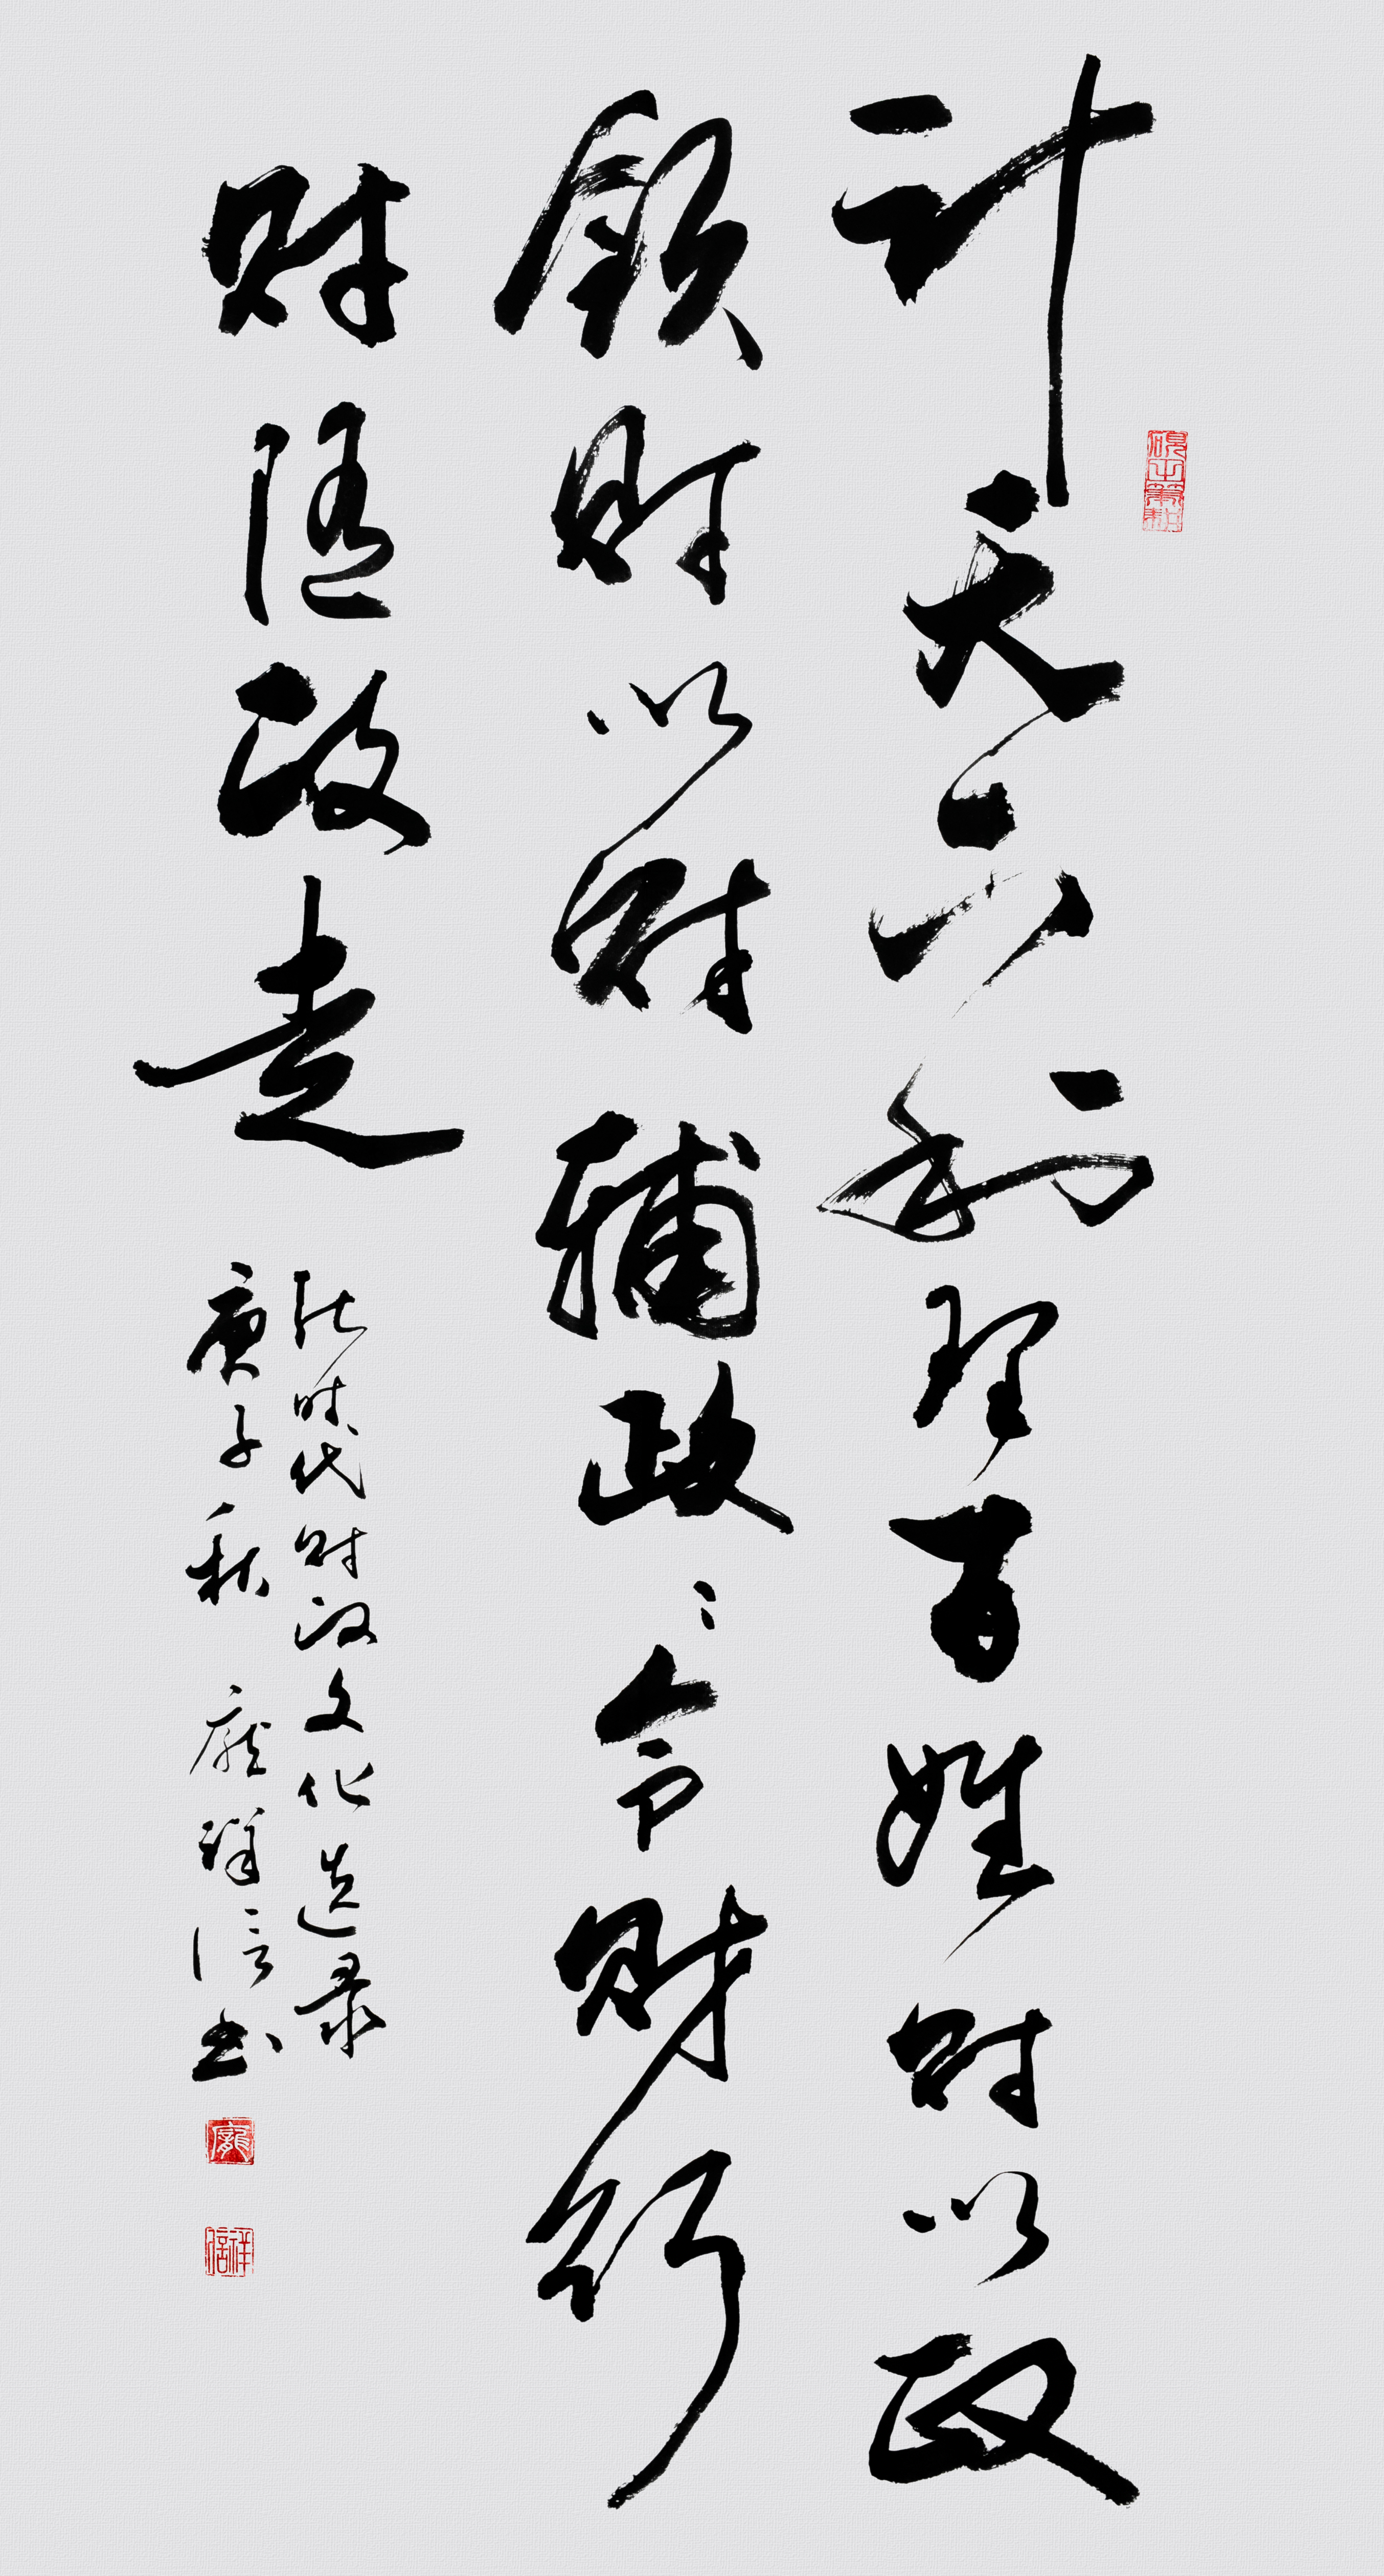 计天下利理百姓财以政
领财以财辅政〻令财行
财随政走
新时代财政文化选录
庚子秋 庞祥信书
龐
祥信